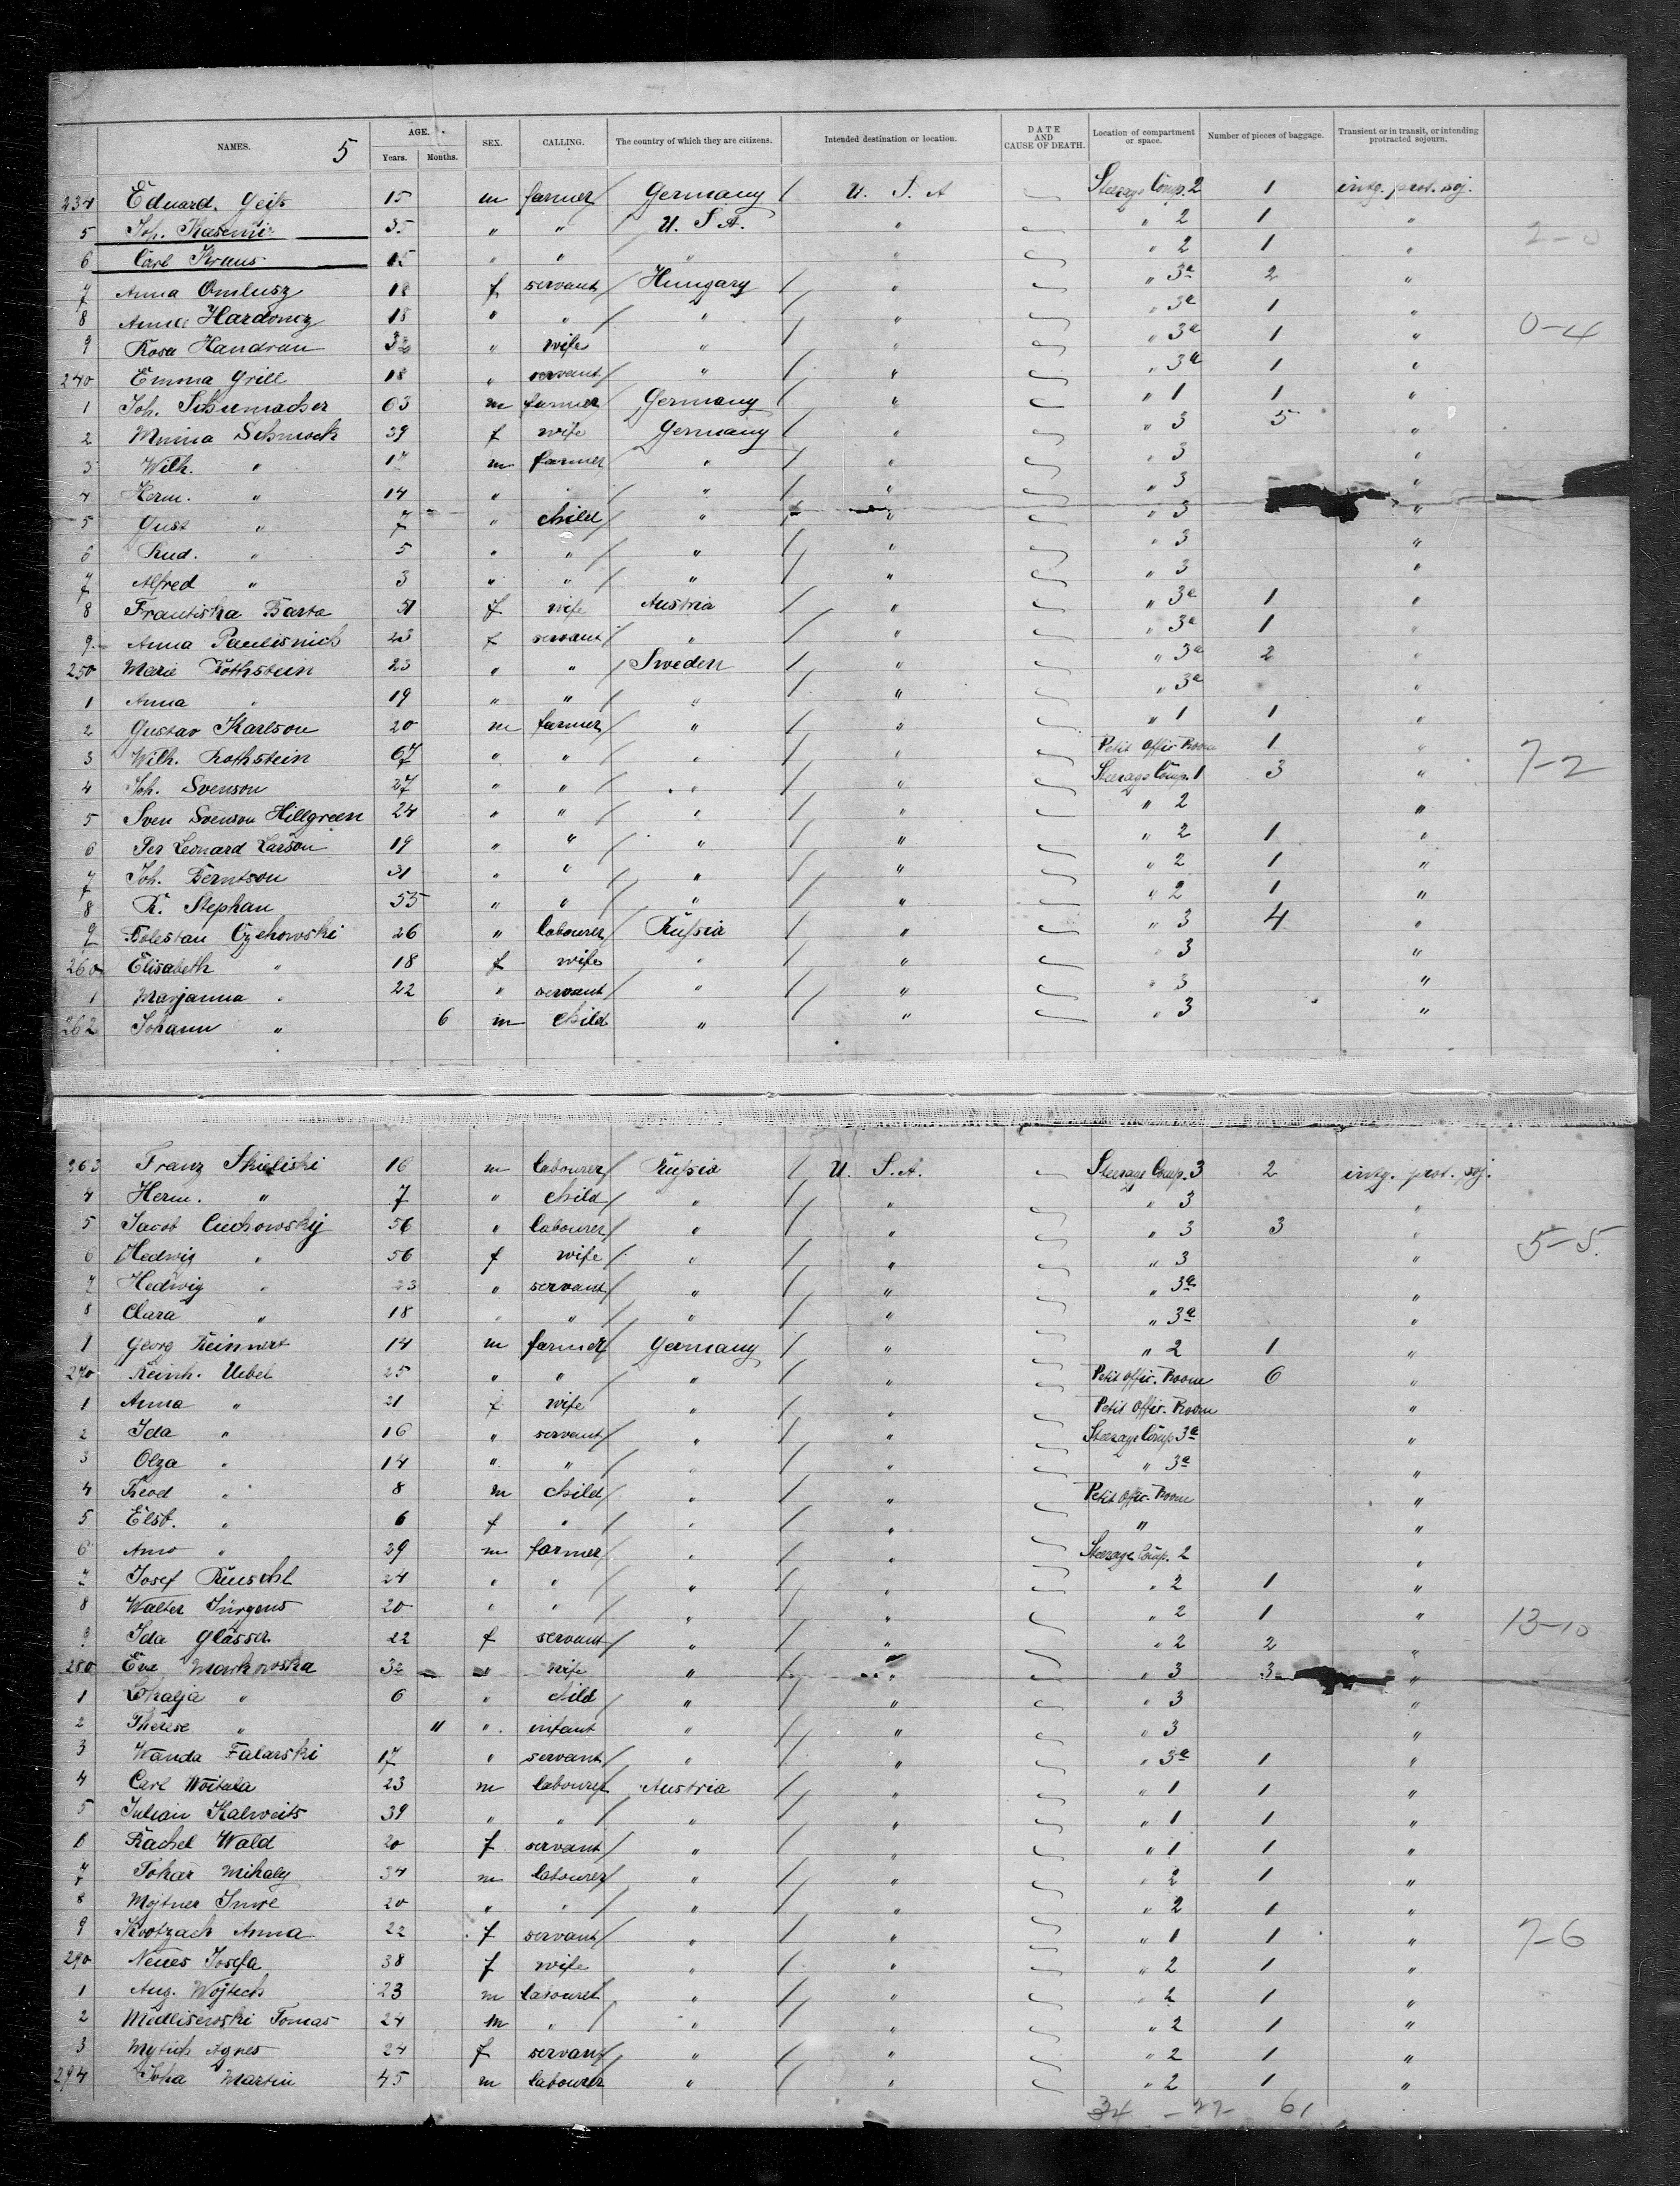 NAMES. 5 AGE. Years. Months. SEX. CALLING. The country of which they are citizens. Intended destination or location. DATE AND CAUSE OF DEATH. Location of compartment or space. Number of pieces of baggage. Transient or in transit, or intending protracted sojourn.
234 Eduard. Geiß 15 m farmer Germany U. S. A Steerage Comp. 2 1 intg. prot. soj.
5 Joh. Kasemir 35 " " U. S A. " " 2 1 "
6 Carl Kraus 15 " " " " " 2 1 " 2-0
7 Anna Omlusz 18 f servant Hungary " " 3a 2 "
8 Anna Hardoncz 18 " " " " " 3a 1 "
9 Rosa Handran " wife " " " 3a 1 " 0-4
240 Emma Grill 18 " servant " " " 3a 1 "
1 Joh. Schumacher 63 m farmer Germany " " 1 1 "
2 Minna Schmock 39 f wife Germany " " 3 5 "
3 Wilh. " 17 m farmer " " " 3 "
4 Herm. " 14 " " " " 3 "
5 Gust " 7 " child " " " 3 "
6 Rud. " 5 " " " " " 3 "
7 Alfred " 3 " " " " " 3 "
8 Frantiska Barta 51 f wife Austria " " 3a 1 "
9 Anna Paulisnich 23 f servant " " " 3a 1 "
250 Marie Rothstein 23 " " Sweden " " 3a 2 "
1 Anna " 19 " " " " " 3a "
2 Gustav Karlson 20 m farmer " " " 1 1 "
3 Wilh. Rothstein 67 " " " " Petit Offic Room 1 "
4 Joh. Svenson 27 " " " " Steerage Comp. 1 3 " 7-2
5 Sven Svenson Hillgreen 24 " " " " " 2 "
6 Per Leonard Larson 19 " " " " " 2 1 "
7 Joh. Berntson 31 " " " " " 2 1 "
8 R. Stephan 55 " " " " " 2 1 "
9 Bolestan Czehowski 26 " labourer Rußia " " 3 4 "
260 Elisabeth " 18 f wife " " " 3 "
1 Marjanna " 22 " servant " " " 3 "
262 Johann " 6 m child " " " 3 "
263 Franz Skieliski 16 m labourer Rußia U. S. A. Steerage Comp. 3 2 intg. prot. soj.
4 Herm. " 7 " child " " " 3 "
5 Jacob Ciechowskij 56 " labourer " " " 3 3 "
6 Hedwig " 56 f wife " " " 3 " 5-5.
7 Hedwig " 23 " servant " " " 3a "
8 Clara " 18 " " " " " 3a "
1 Georg Reinnert 14 m farmer Germany " " 2 1 "
270 Reinh. Uebel 25 " " " " Petit offic. Room 6 "
1 Anna " 21 f wife " " Petit Offic. Room "
2 Ida " 16 " servant " " Steerage Comp 3a "
3 Olga " 14 " " " " " 3a "
4 Theod " 8 m child " " Petit Offic. Room "
5 Elsb. " 6 f " " " " "
6 Arno " 29 m farmer " " Steerage Comp. 2 "
7 Josef Reuschl 24 " " " " " 2 1 "
8 Walter Jürgens 20 " " " " " 2 1 "
9 Ida Glässer 22 f servant " " " 2 2 " 13-10
280 Eva Markowska 32 " wife " " " 3 3 "
1 " 6 " child " " " 3 "
2 Therese " 11 " infant " " " 3 "
3 Wanda Falarski 17 " servant " " " 3a 1 "
4 Carl Woitala 23 m labourer Austria " " 1 1 "
5 Julian Kalweits 39 " " " " " 1 1 "
6 Rachel Wald 20 f servant " " " 1 1 "
7 Tokar Mihaly 34 m labourer " " " 2 1 "
8 Mytner Imre 20 " " " " " 2 1 "
9 Kootzach Anna 22 f servant " " " 1 1 "
290 Neues Josefa 38 f wife " " " 2 1 " 7-6
1 Aug. Wojtech 23 m labourer " " " 2 1 "
2 Medliseroski Tomas 24 m " " " " 2 1 "
3 Mytich Agnes 24 f servant " " " 2 1 "
294 Joha Martin 45 m labourer " " " 2 1 "
34 - 27- 61